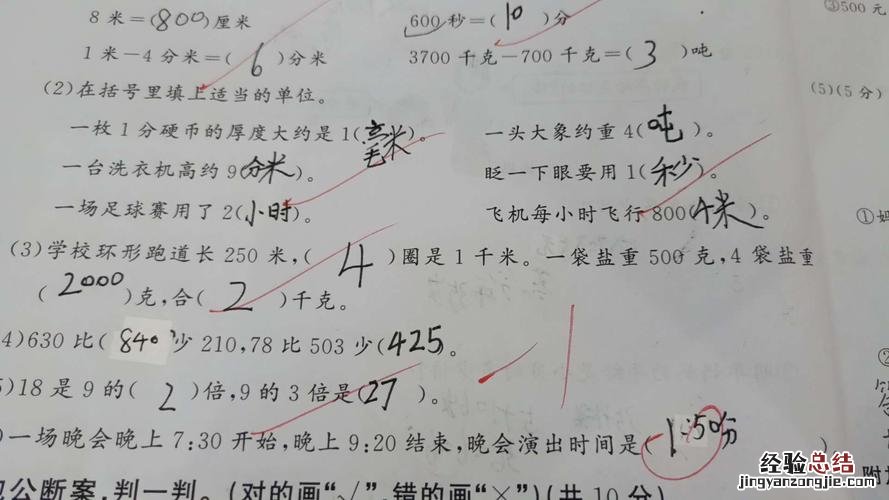 8米=(800)厘米 600秒=(10)分 ③500元
1米-4分米=(6)分米 3700千克-700千克=(3)吨
(2)在括号里填上适当的单位。 (5)(5分)
一枚1分硬币的厚度大约是1(毫米)。 一头大象约重4(吨)。
一台洗衣机高约9(分米)。 眨一下眼要用1(秒)。
一场足球赛用了2(小时)。 飞机每小时飞行800(千米)。
(3)学校环形跑道长250米,(4)圈是1千米。一袋盐重500克,4袋盐重
(2000)克,合(2)千克。
4)630比(840)少210,78比503少(425)。
)18是9的(2)倍,9的3倍是(27)。
)一场晚会晚上7:30开始,晚上9:20结束,晚会演出时间是(1:50分)
公断案,判一判。(对的画“√”,错的画“×”)(共10分)
经验总结
jingyanzongjie.com